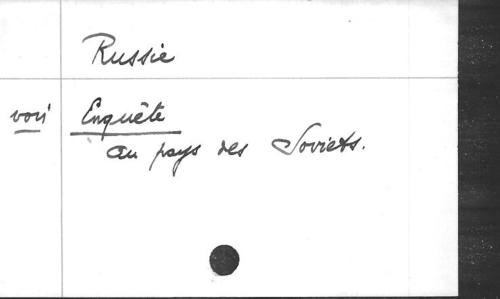 Russie
voir Enquête
au pays des Soviets.